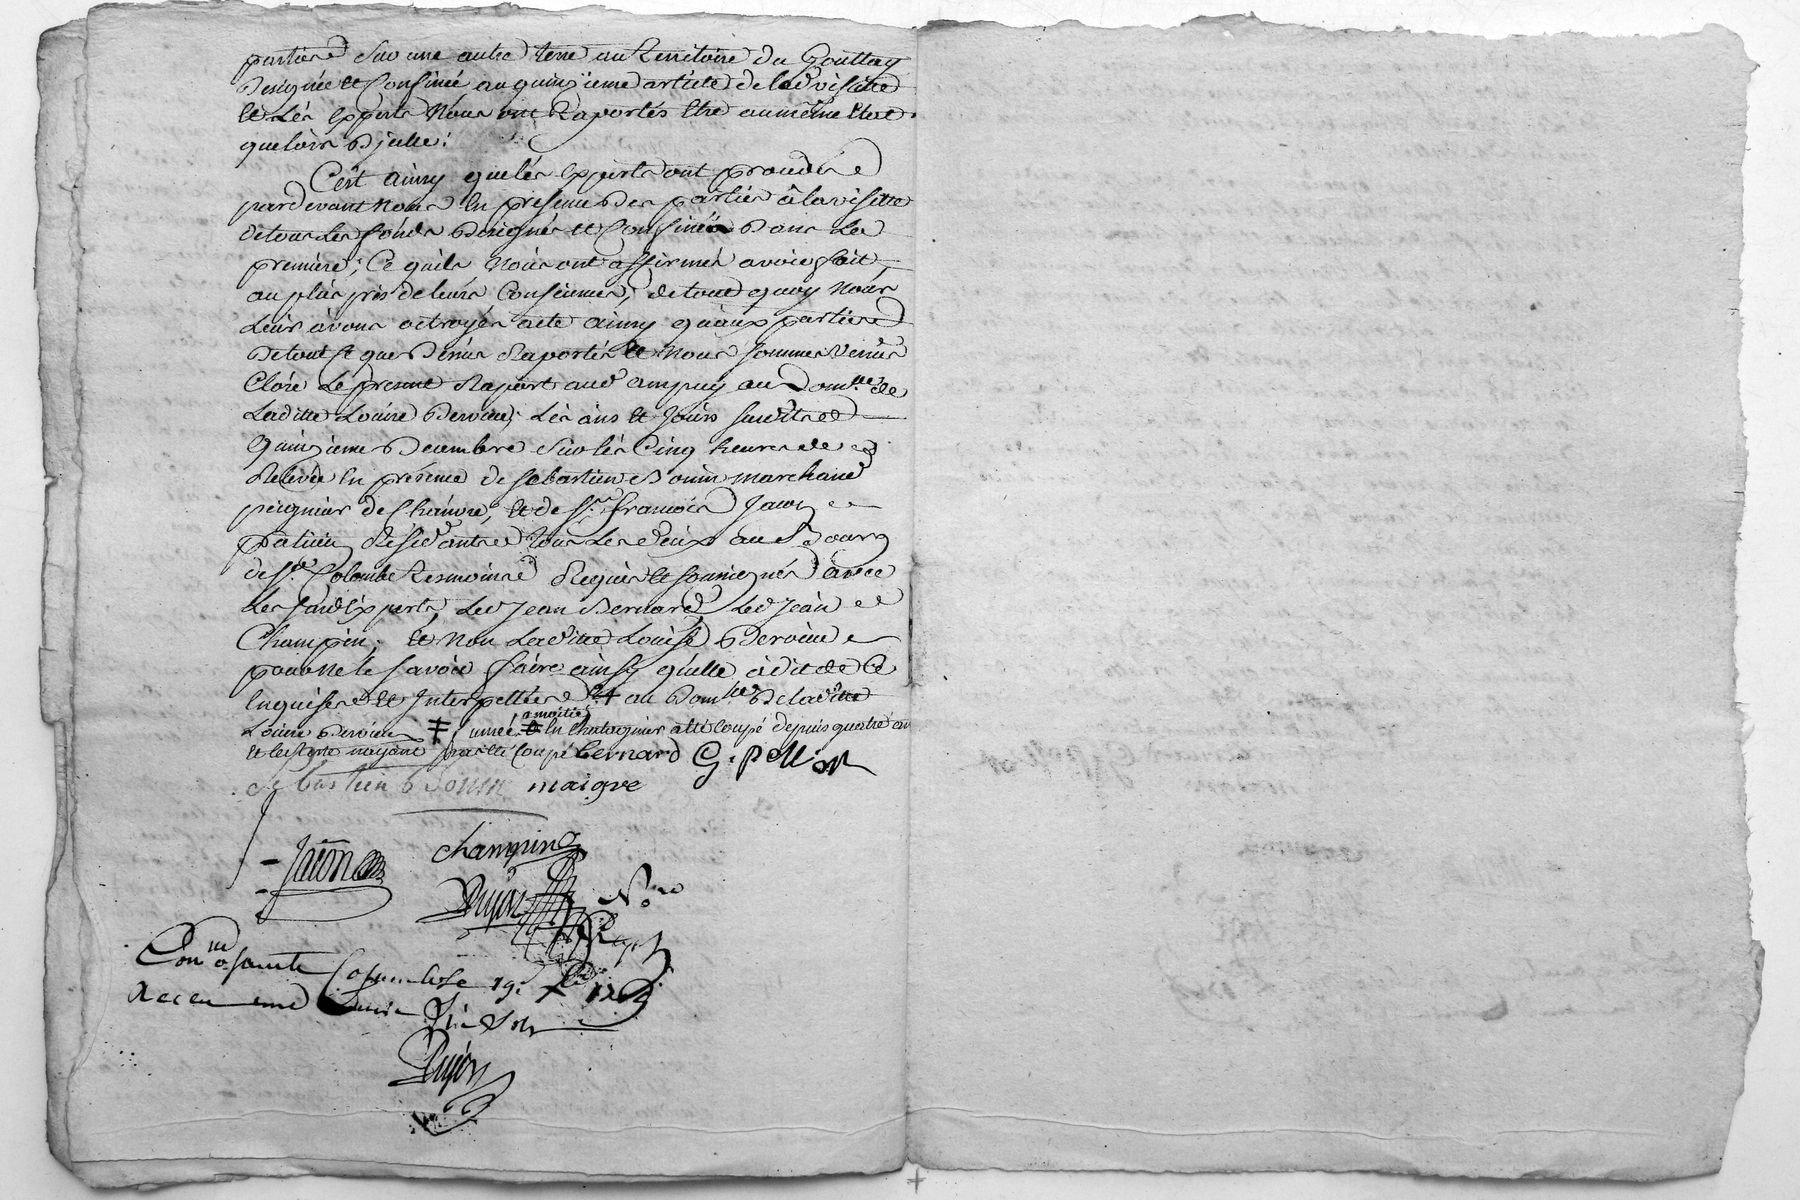 parties Sur une autre terre au territoire du Gouttay
Designée et Confinée au quinzieme article de lad visitte
et Les experts Nous ont Raportés Etre au même Etat
que lors D'jcelle.
C'est ainsy que les experts ont proceddé
pardevant Nous En presence Des parties à la visitte
de tous Les fonds Designés et Confinés Dans La
premiere; Ce quils Nous ont affirmés avoir fait
au plus pres de leurs Consciences; de tout quoy Nous
Leurs avons octroyés acte ainsy qu'aux parties
De tout Ce que Dessus Raportés et Nous sommes Venus
Clore Le present Raport aud ampuy au Dom.lle de
Laditte Louise Dervieu; Les ans et Jours susdits
quinzieme Decembre Sur les Cinq heures de
Relevée En presence de Sebastien Bonin marchand
peignier de Chanvre, et de S.r francois Jaon
praticien Residants tous Les deux au Bourg
de S.te Colombe temoins Requis et soussignés avec
Les susd Experts, Led Jean Bernard Led Jean
Champin, et Non Laditte Louise Dervieu
pour ne le savoir faire ainsy qu'elle à dit de Ce
Enquise et Interpellée au Dom.lle De laditte
Louise Dervieu amoitié En Chataigner a été Coupé depuis quatre ans
et le reste nayant pas été Coupé bernard G. pellion
Sebastien Bonin maigre
Jaon champin
Dujon N.re
Con.lé a sainte Colombe le 19.e X.bre
Dujon